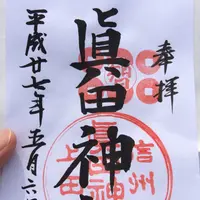 奉拝
眞田神
平成廿七年五月六
信州
上田
眞田神社